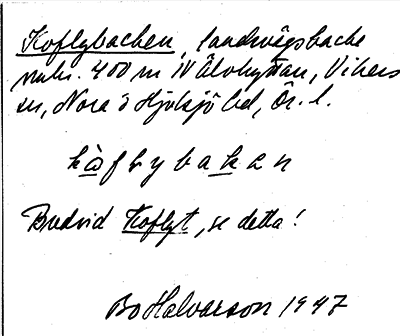 Koflybacken, landsvägsbacke
omkr. 400 m NV Älvhyttan, Vikers
sn, Nora o Hjulsjö bd, Ör. l.
kòflybakan
Bredvid Koflyt, se detta!
Bo Halvarson 1947